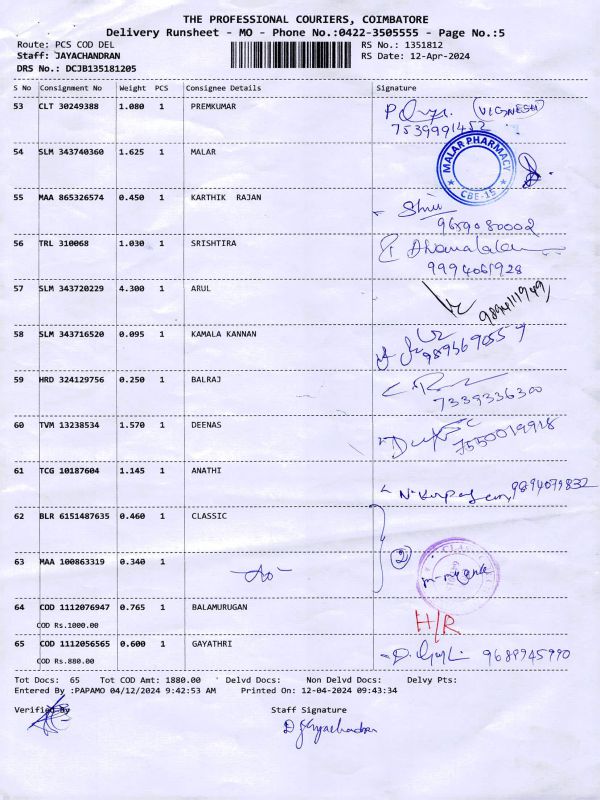 THE PROFESSIONAL COURIERS, COIMBATORE
Delivery Runsheet - MO - Phone No.:0422-3505555 - Page No.:5
Route: PCS COD DEL RS No.: 1351812
Staff: JAYACHANDRAN RS Date: 12-Apr-2024
DRS No.: DCJB135181205
S No Consignment No Weight PCS Consignee Details Signature
53 CLT 30249388 1.080 1 PREMKUMAR (VIGNESH)
7539991452
54 SLM 343740360 1.625 1 MALAR MALAR PHARMACY CBE-15
55 MAA 865326574 0.450 1 KARTHIK RAJAN
9659080002
56 TRL 310068 1.030 1 SRISHTIRA
9994061928
57 SLM 343720229 4.300 1 ARUL 9894111949
58 SLM 343716520 0.095 1 KAMALA KANNAN
59 HRD 324129756 0.250 1 BALRAJ
7339336300
60 TVM 13238534 1.570 1 DEENAS 7550019918
61 TCG 10187604 1.145 1 ANATHI 9894079832
62 BLR 6151487635 0.460 1 CLASSIC
2
63 MAA 100863319 0.340 1 -do-
64 COD 1112076947 0.765 1 BALAMURUGAN H/R
COD Rs.1000.00
65 COD 1112056565 0.600 1 GAYATHRI 9689945990
COD Rs.880.00
Tot Docs: 65 Tot COD Amt: 1880.00 Delvd Docs: Non Delvd Docs: Delvy Pts:
Entered By :PAPAMO 04/12/2024 9:42:53 AM Printed On: 12-04-2024 09:43:34
Verified By Staff Signature
D Jeyachandran